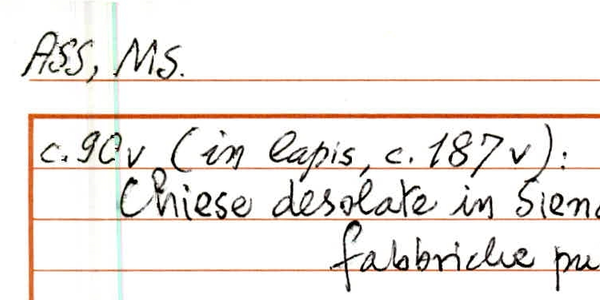 ASS, Ms.
c. 90v (in lapis, c. 187v):
Chiese desolate in Siena
fabbriche pu